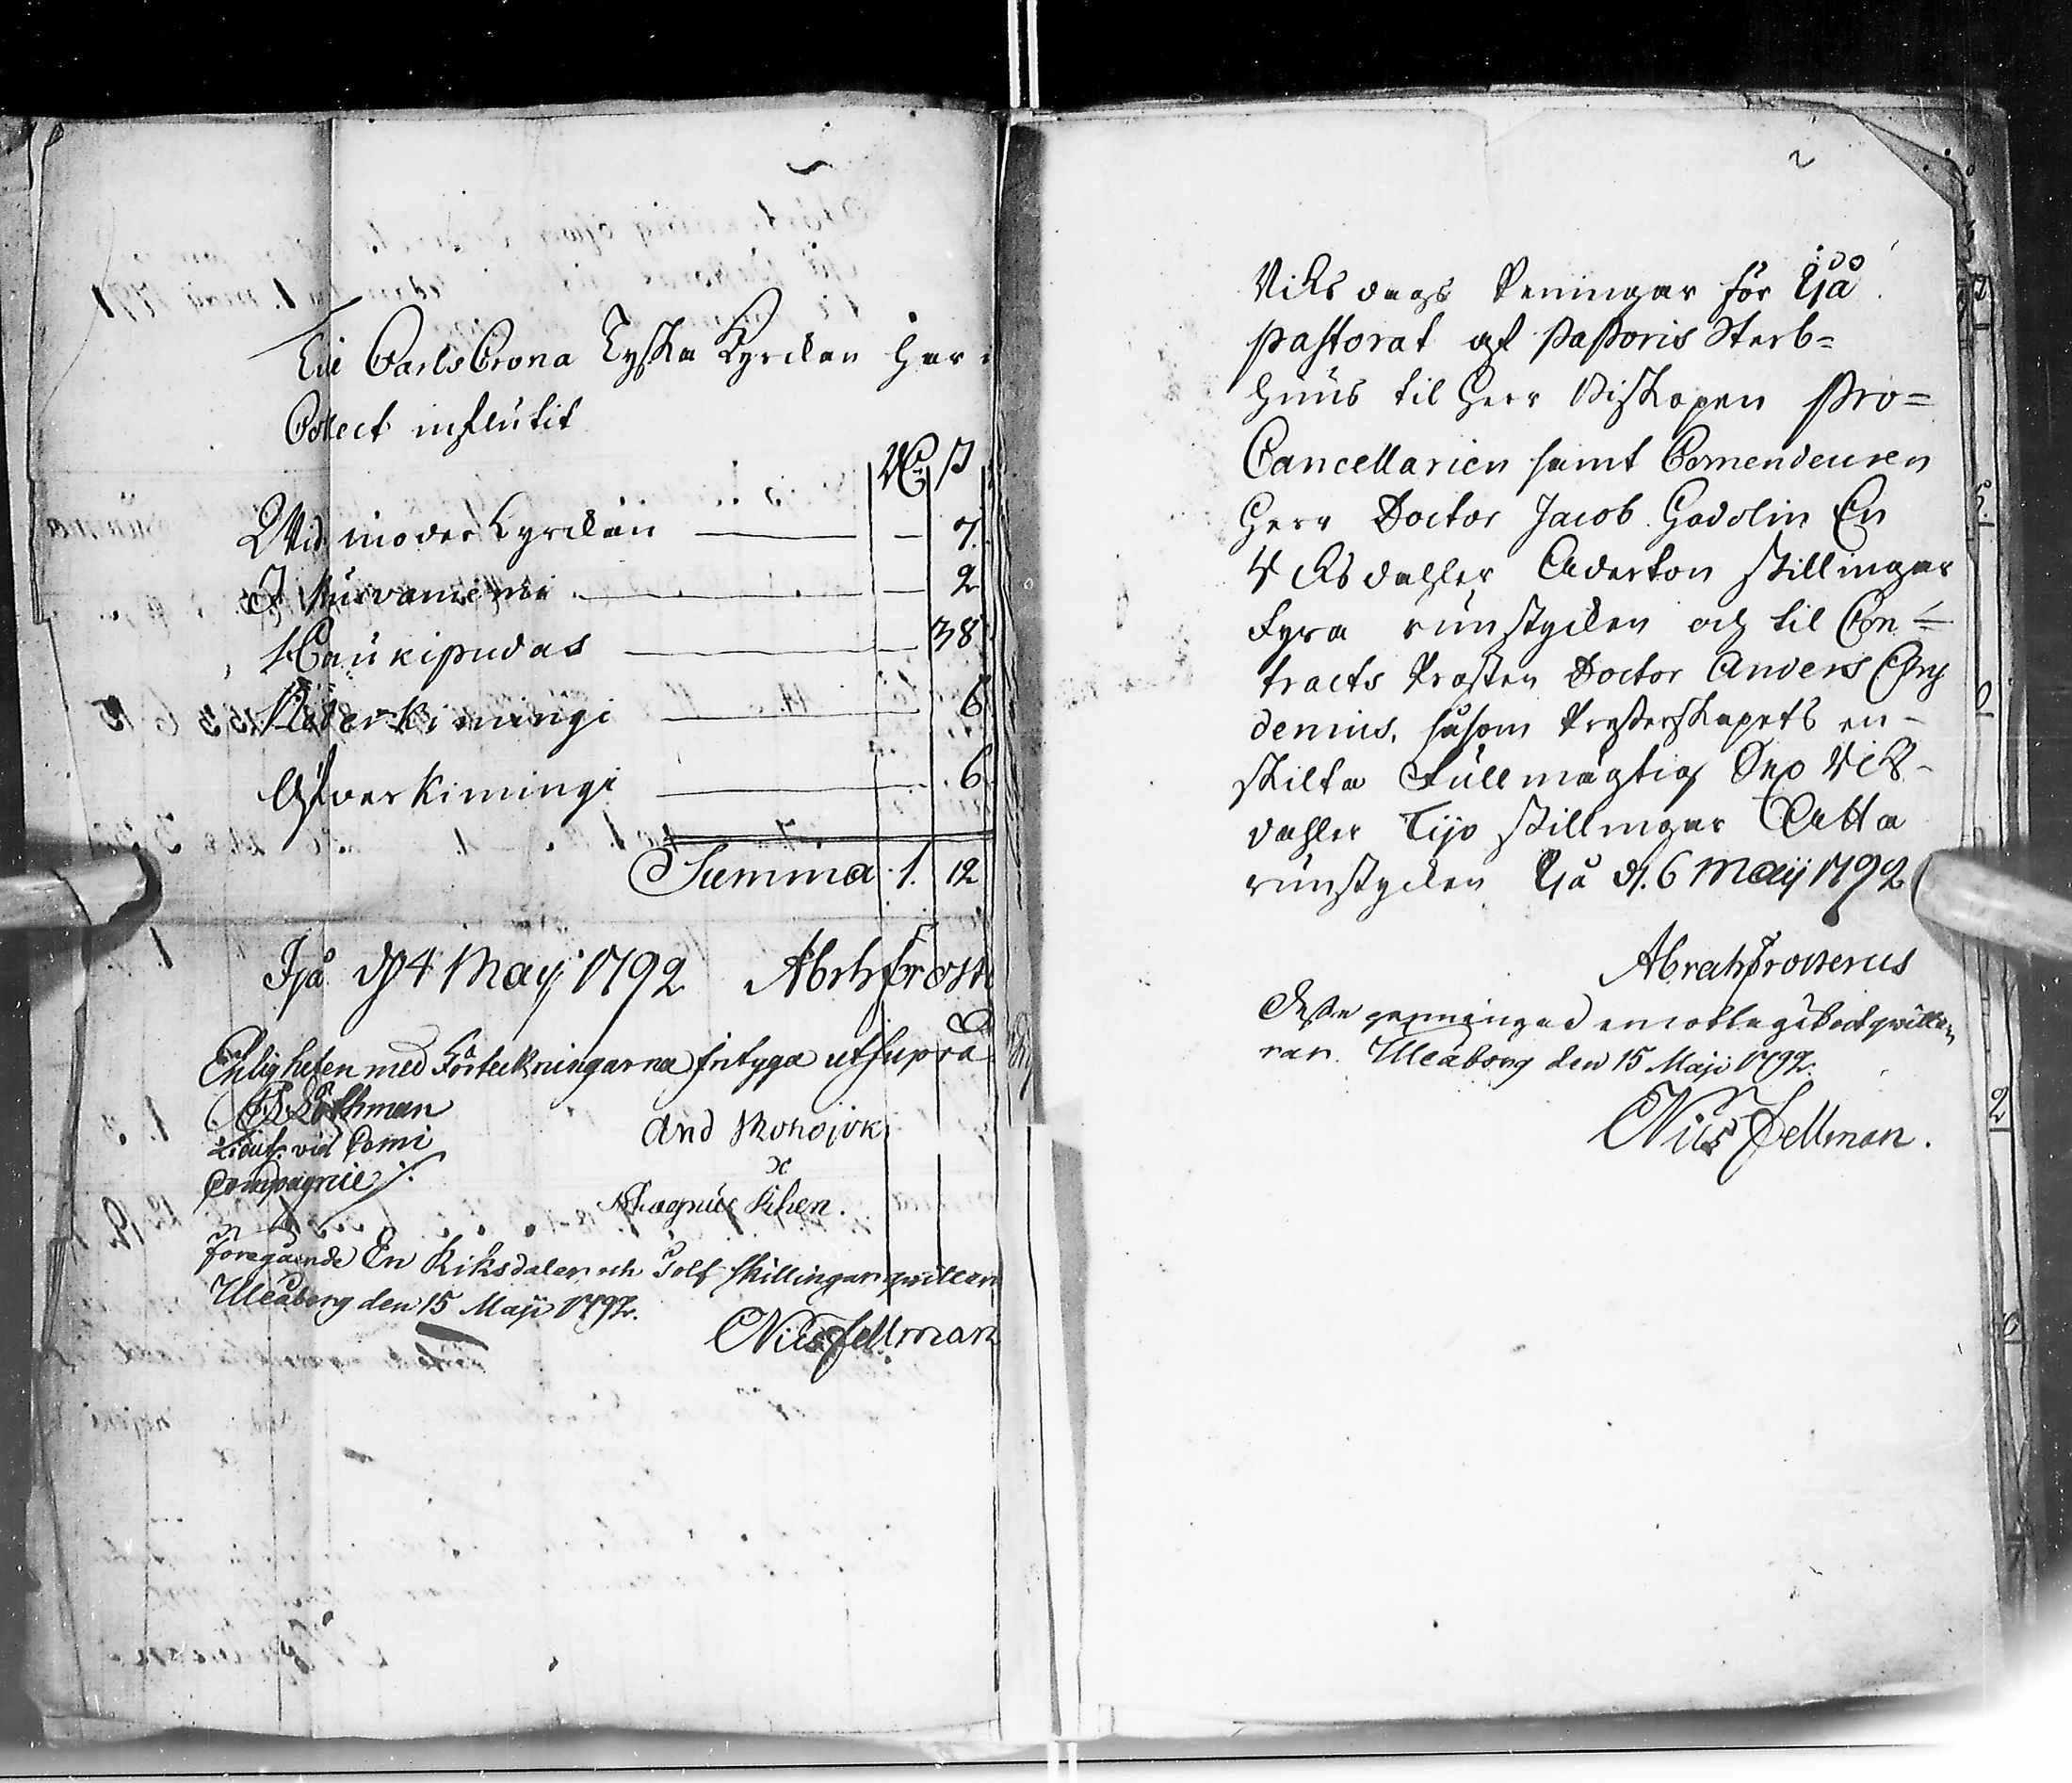 Til CarlsCrona Tyska Kyrckan har i
Colect influtit
Rd ß
Wid moder Kyrckan — 7.
I Kuivaniemi — 2
Haukipudas — 38
Neder Kimingi — 6
Öfver Kimingi — 6
Summa 1. 12
Ijå d. 4 Maij 1792 Abrh Frost
Enligheten med Förteckningarna intyga ut supra
Lieut. vid Cemi
Compagnie
And
Magnus
föregående En Riksdaler och Tolf skillingar qvitterar
Uleåborg den 15 Maji 1792.
Nils Fellman
2
Riks dags Peningar för Ijå
Pastorat af Pastoris Sterb=
huus til Herr Biskopen Pro=
Cancellarien samt Comendeuren
Herr Doctor Jacob Gadolin En
Riksdahler Aderton skillingar
Fyra runstycken och til Con=
tracts Prosten Doctor Anders Chy
denius, såsom Presterskapets en-
skilta Fullmägtig Sex Riks-
dahler Tijo skillingar Otta
runstycken Ijå d. 6 Maij 1792
Abrah Frosterus
Desse penningar emottagit och qvitte-
rar. Uleåborg den 15 Maji 1792.
Nils Fellman.